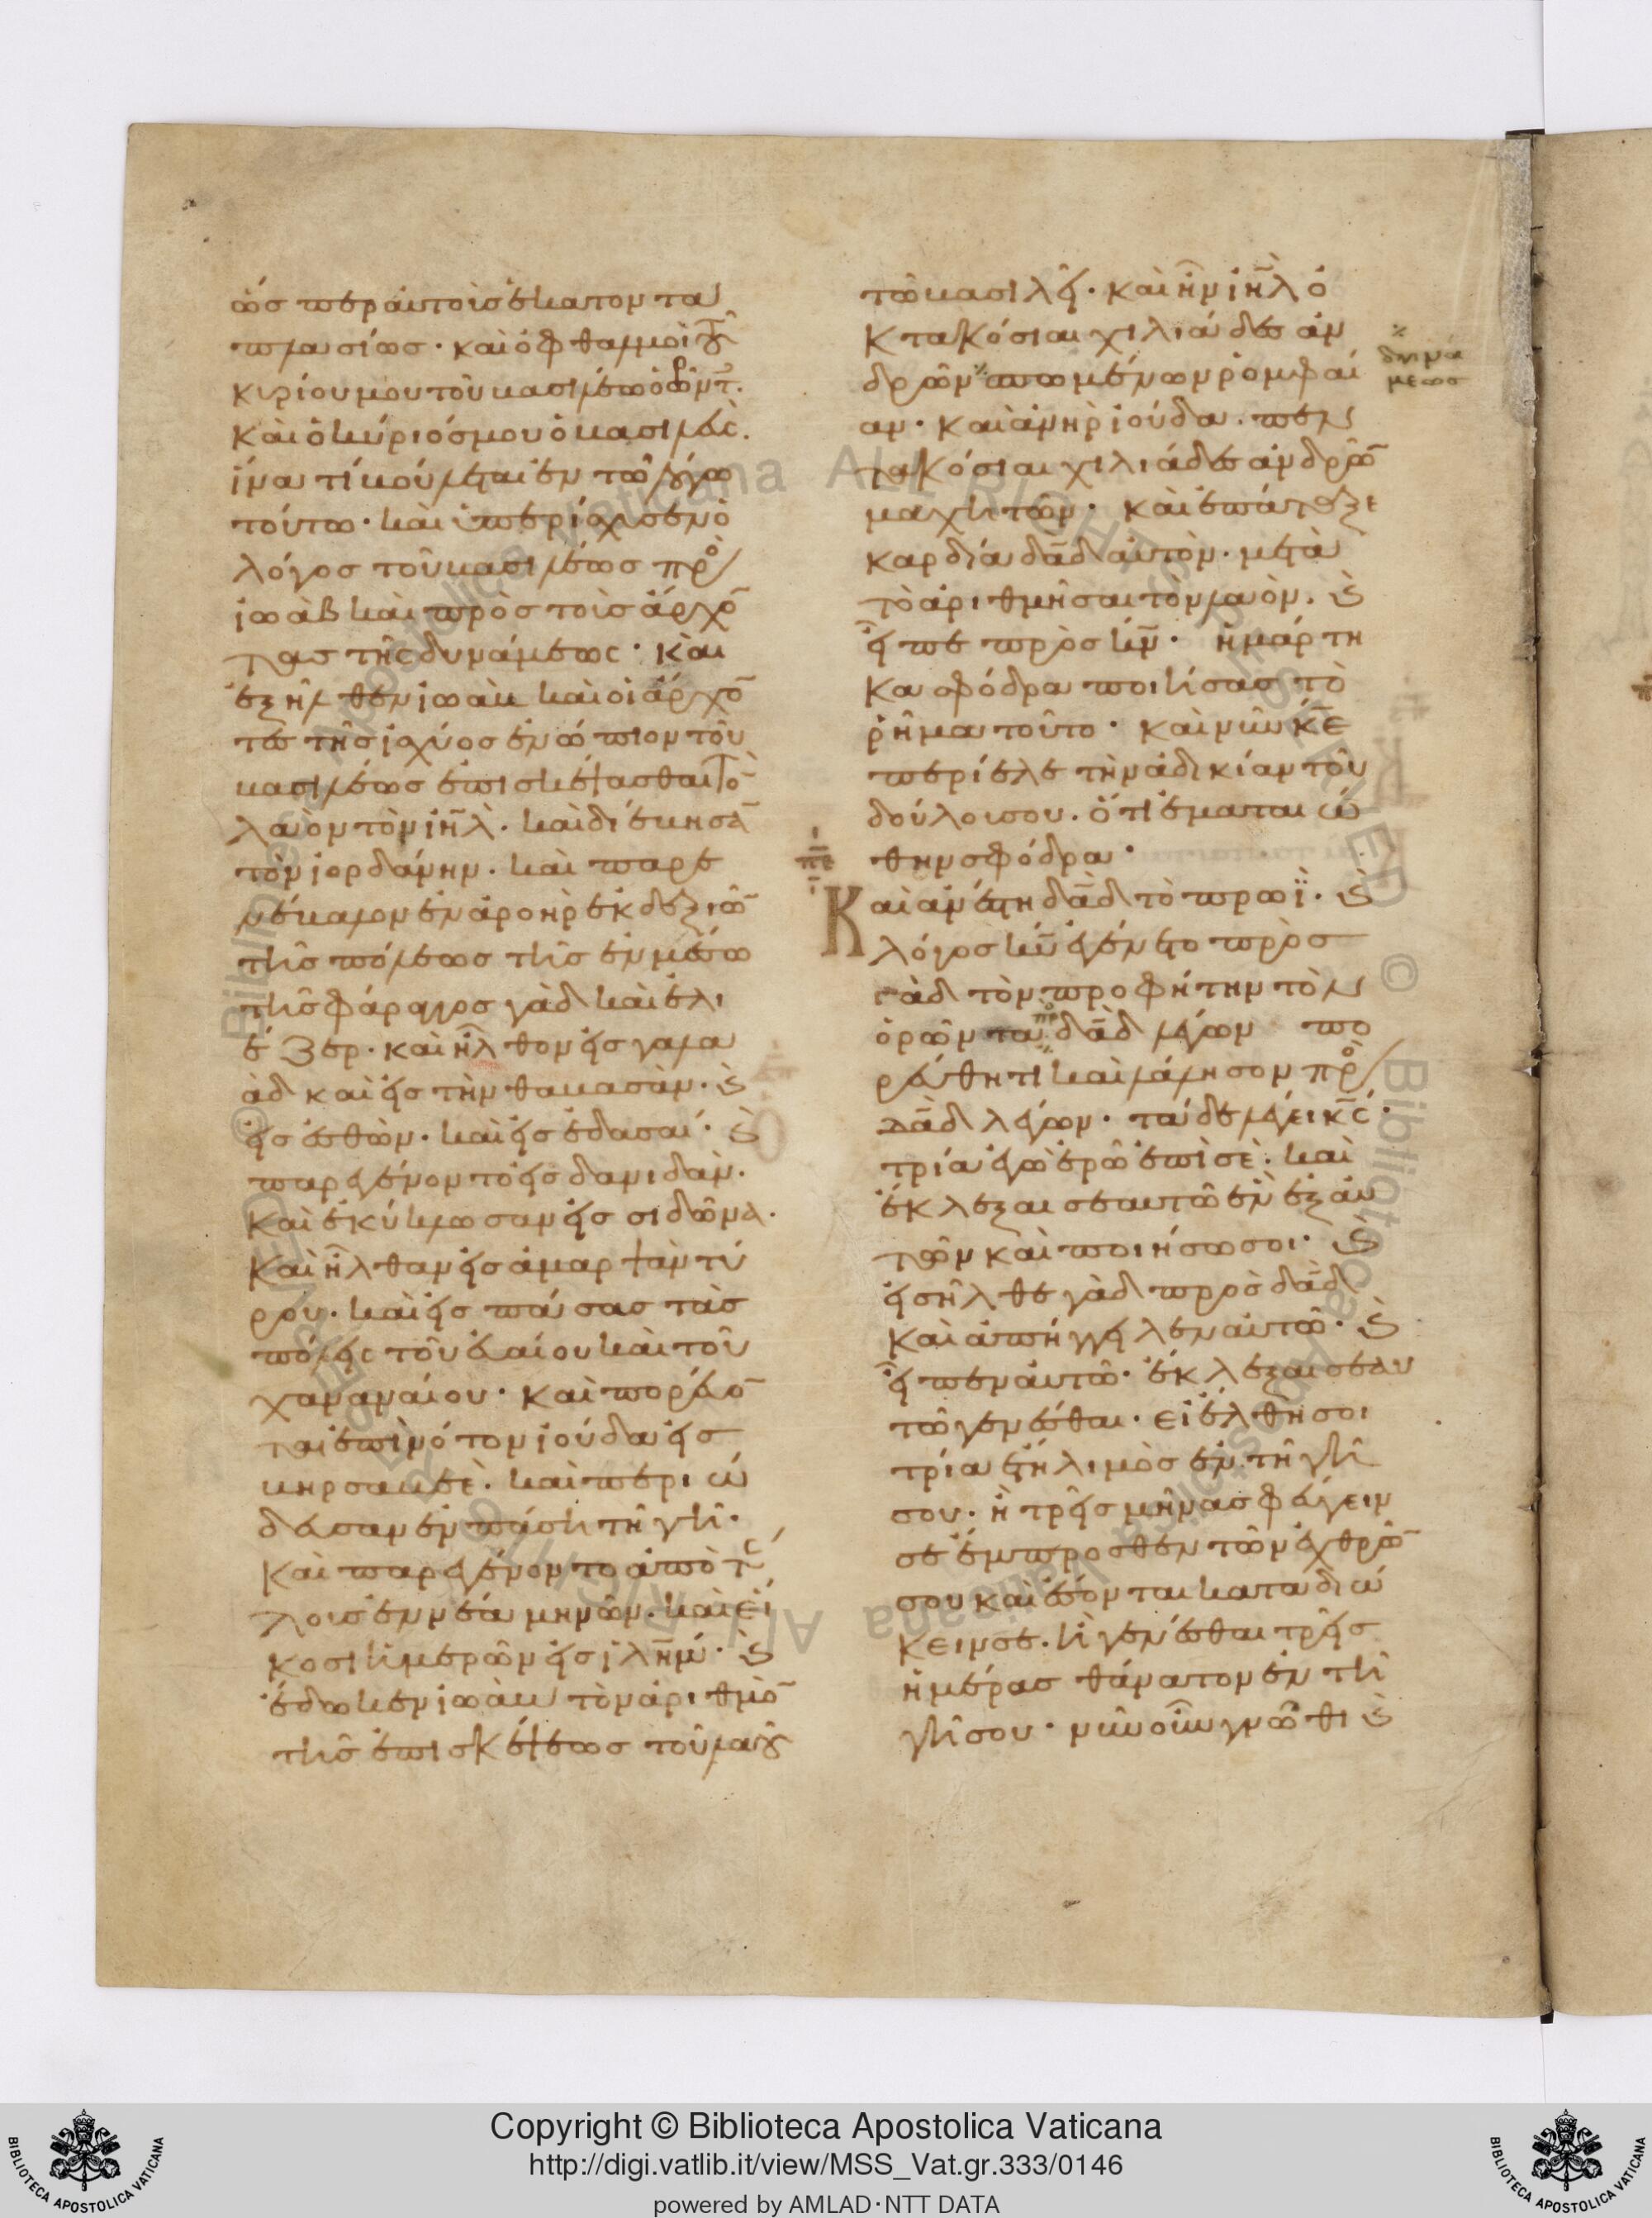 ὡς περ αὐτοὶς ἑκατοντα
πλασίως· καὶ ὀφθαλμοὶ τοῦ
κυρίου μου τοῦ βασιλέως ὁρῶντες.
καὶ ὁ κύριός μου ὁ βασιλεὺς.
ἵνα τί βούλεται ἐν τῶ λόγω
τούτω· καὶ ὑπερίσχυσεν ὁ
λόγος τοῦ βασιλέως πρὸς
ἰωὰβ καὶ πρὸς τοὺς ἄρχο̅
τας τῆς δυνάμεως· καὶ
ἐξῆλθεν ἰωὰβ καὶ οἱ ἄρχο̅
τες τῆς ἰσχύος ἐνώπιον τοῦ
βασιλέως ἐπισκέψασθαι τὸ̅
λαὸν τὸν ιη̅λ. καὶ διέβησα̅
τὸν ἰορδάνην. καὶ παρε
νέβαλον ἐν ἀροὴρ ἐκ δεξιῶ̅
τῆς πόλεως τῆς ἐν μέσω
τῆς φάραγγος γὰδ καὶ ἐλι
έζερ. καὶ ἦλθον εἰς γαλα
ὰδ καὶ εἰς τὴν θαβασὰν. ϗ
εἰς ἐσθὼν. καὶ εἰς ἐδασαί· ϗ
παρεγένοντο εἰς δανιδὰν.
καὶ ἐκύκλωσαν εἰς σιδῶνα.
καὶ ἦλθαν εἰς ἀμαρψὰν τύ
ρου. καὶ εἰς πάσας τὰς
πόλεις τοῦ εὐαίου καὶ τοῦ
χαναναίου· καὶ πορεύο̅
ται ἐπὶ νότον ἰούδα εἰς
βηρσαβεὲ. καὶ περιώ
δευσαν ἐν πάση τῆ γῆ·
καὶ παρεγένοντο ἀπὸ τέ
λους ἐννέα μηνῶν. καὶ εἴ
κοσι ἡμερῶν εἰς ιλη̅μ· ϗ
ἔδωκεν ἰωὰβ τὸν ἀριθμὸ̅
τῆς ἐπισκέψεως τοῦ λαοῦ
τῶ βασιλεῖ· καὶ ἦν ιη̅λ ὀ
κτακόσιαι χιλιάδες ἀν
δρῶν σπωμένων ῥομφαί
δυνά
μεως
αν· καὶ ἀνὴρ ἰούδα. πεν
τακόσιαι χιλιάδες ἀνδρῶ̅
μαχητῶν· καὶ ἐπάταξε
καρδία δα̅δ αὐτὸν. μετὰ
τὸ ἀριθμῆσαι τὸν λαὸν. ϗ
εἶπε πρὸς κν̅· ἡμάρτη
κα σφόδρα ποιήσας τὸ
ῥῆμα τοῦτο· καὶ νῦν κ̅ε
περίελε τὴν ἀδικίαν τοῦ
δούλου σου. ὅτι ἐματαιώ
θην σφόδρα·
Καὶ ἀνέστη δα̅δ τὸ πρωῒ. ϗ
λόγος κυ̅ ἐγένετο πρὸς
γὰδ τὸν προφήτην τὸν
ὁρῶντα πρ δα̅δ λέγων πο
ρεύθητι καὶ λάλησον πρὸς
δα̅δ λέγων· τάδε λέγει κ̅ς·
τρία ἐγὼ ἐρῶ ἐπὶ σὲ. καὶ
ἔκλεξαι σεαυτῶ ἓν ἐξ αὐ
τῶν καὶ ποιήσω σοι· ϗ
εἰσῆλθε γὰδ πρὸς δα̅δ
καὶ ἀπήγγειλεν αὐτῶ· ϗ
εἶπεν αὐτῶ· ἔκλεξαι σεαυ
τῶ γενέσθαι· εἰ ἔλθη σοι
τρία ἔτη λιμὸς ἐν τῆ γῆ
σου· ἢ τρεῖς μῆνας φεύγειν
σε ἔμπροσθεν τῶν ἐχθρῶ̅
σου καὶ ἔσονται καταδιώ
κειν σε. ἢ γενέσθαι τρεῖς
ἡμέρας θάνατον ἐν τῆ
γῆ σου· νῦν οὖν γνῶθι ϗ
Copyright © Biblioteca Apostolica Vaticana
http://digi.vatlib.it/view/MSS_Vat.gr.333/0146
powered by AMLAD·NTT DATA